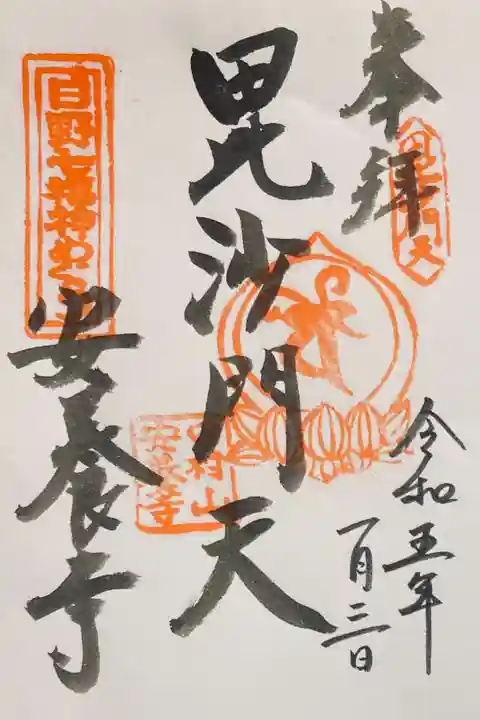 奉拝
毘沙門天
令和五年
一月三日
毘沙門天
日野七福神めぐり
安養寺